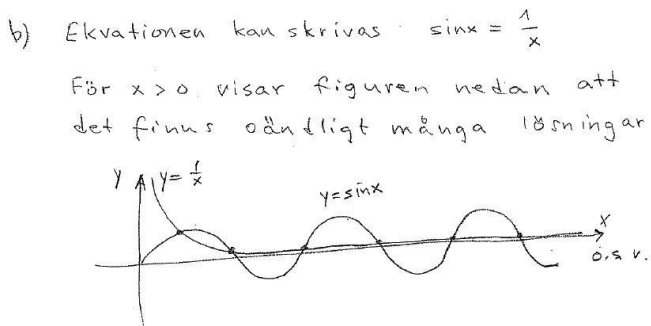 b) Ekvationen kan skrivas sinx = 1/x
För x > 0 visar figuren nedan att
det finns oändligt många lösningar
y y = 1/x
y = sinx
x
o.s.v.